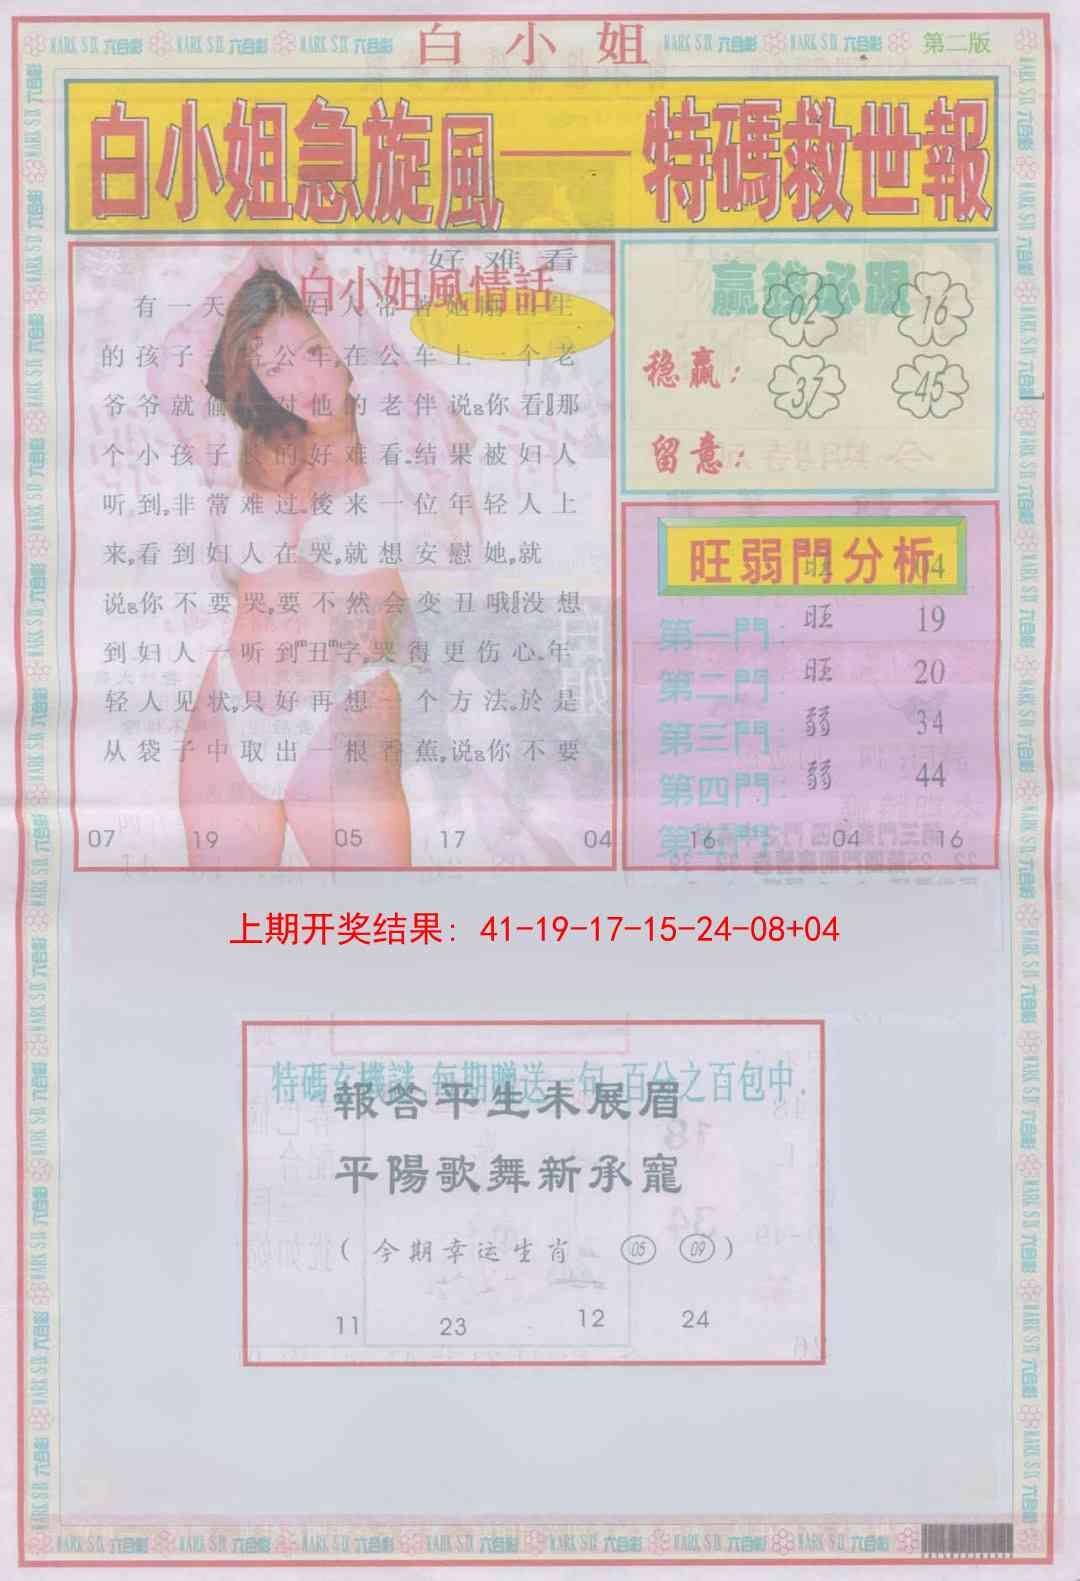 白小姐
第二版
白小姐急旋風——特碼救世報
好难看
白小姐風情話
有一天
的孩子 公车,在公车上一个老
爷爷就 对他的老伴说:你看!那
个小孩子长的好难看.结果被妇人
听到,非常难过.後来一位年轻人上
来,看到妇人在哭,就想安慰她,就
说:你不要哭,要不然会变丑哦!没想
到妇人一听到"丑"字,哭得更伤心.年
轻人见状,只好再想一个方法.於是
从袋子中取出一根香蕉,说:你不要
07 19 05 17 04 16 04 16
赢钱必跟
02 16
稳赢:
37 45
留意:
旺弱門分析
旺 04
第一門: 旺 19
第二門: 旺 20
第三門: 弱 34
第四門: 弱 44
上期开奖结果: 41-19-17-15-24-08+04
特碼玄機謎,每期贈送一句,百分之百包中.
報答平生未展眉
平陽歌舞新承寵
(今期幸运生肖 05 09)
11 23 12 24
MARK SIX 六合彩